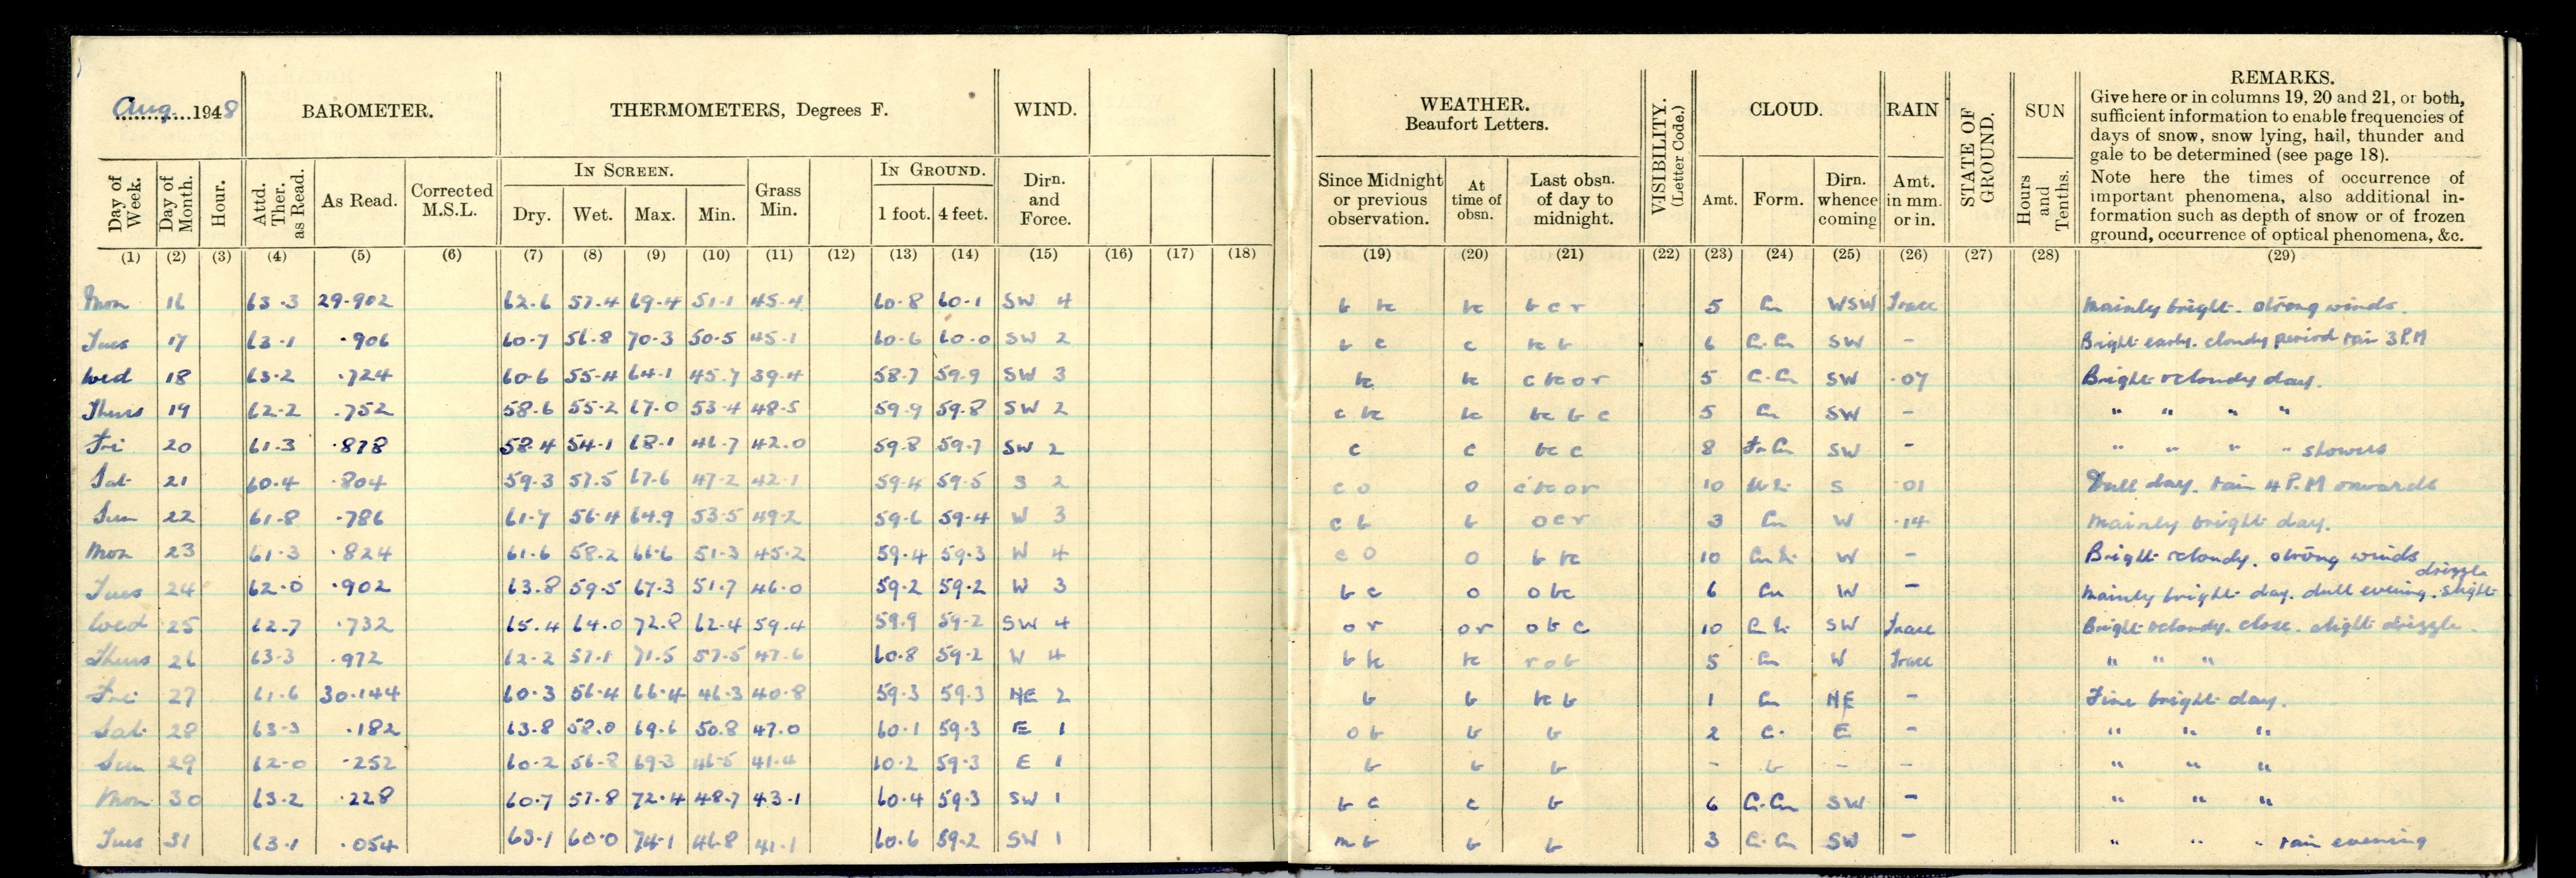 Aug. 1948 BAROMETER. THERMOMETERS, Degrees F. WIND. WEATHER. Beaufort Letters. VISIBILITY. (Letter Code.) CLOUD. RAIN STATE OF GROUND. SUN REMARKS.
Give here or in columns 19, 20 and 21, or both,
sufficient information to enable frequencies of
days of snow, snow lying, hail, thunder and
gale to be determined (see page 18).
Note here the times of occurrence of
important phenomena, also additional in-
formation such as depth of snow or of frozen
ground, occurrence of optical phenomena, &c.
IN SCREEN. IN GROUND.
Day of Week. Day of Month. Hour. Attd. Ther. as Read. As Read. Corrected M.S.L. Dry. Wet. Max. Min. Grass Min. 1 foot. 4 feet. Dirn. and Force. Since Midnight or previous observation. At time of obsn. Last obsn. of day to midnight. Amt. Form. Dirn. whence coming Amt. in mm. or in. Hours and Tenths.
(1) (2) (3) (4) (5) (6) (7) (8) (9) (10) (11) (12) (13) (14) (15) (16) (17) (18) (19) (20) (21) (22) (23) (24) (25) (26) (27) (28) (29)
Mon 16 63.3 29.902 62.6 57.4 69.4 51.1 45.4 60.8 60.1 SW 4 b bc bc b c r 5 Cu WSW Trace Mainly bright. strong winds.
Tues 17 63.1 .906 60.7 56.8 70.3 50.5 45.1 60.6 60.0 SW 2 b c c bc b 6 Ci.Cu SW - Bright early. cloudy period rain 3 P.M
Wed 18 63.2 .724 60.6 55.4 64.1 45.7 39.4 58.7 59.9 SW 3 bc bc c bc o r 5 Ci.Cu SW .07 Bright & cloudy day.
Thurs 19 62.2 .752 58.6 55.2 67.0 53.4 48.5 59.9 59.8 SW 2 c bc bc bc b c 5 Cu SW - " " " "
Fri 20 61.3 .878 58.4 54.1 68.1 46.7 42.0 59.8 59.7 SW 2 c c bc c 8 Fr.Cu SW - " " " " showers
Sat 21 60.4 .804 59.3 57.5 67.6 47.2 42.1 59.4 59.5 S 2 c o o c bc o r 10 S .01 Dull day. rain 4 P.M onwards
Sun 22 61.8 .786 61.7 56.4 64.9 53.5 49.2 59.6 59.4 W 3 c b b o c r 3 Cu W .14 Mainly bright day.
Mon 23 61.3 .824 61.6 58.2 66.6 51.3 45.2 59.4 59.3 W 4 c o o b bc 10 W - Bright & cloudy. strong winds
Tues 24 62.0 .902 63.8 59.5 67.3 51.7 46.0 59.2 59.2 W 3 b c o o bc 6 Cu W - Mainly bright day. dull evening. slight drizzle
Wed 25 62.7 .732 65.4 64.0 72.8 62.4 59.4 59.9 59.2 SW 4 o r o r o b c 10 SW Trace Bright & cloudy. close. slight drizzle.
Thurs 26 63.3 .972 62.2 57.1 71.5 57.5 47.6 60.8 59.2 W 4 b bc bc r o b 5 Cu W Trace " " "
Fri 27 61.6 30.144 60.3 56.4 66.4 46.3 40.8 59.3 59.3 NE 2 b b bc b 1 Cu NE - Fine bright day.
Sat 28 63.3 .182 63.8 58.0 69.6 50.8 47.0 60.1 59.3 E 1 o b b b 2 Ci E - " " "
Sun 29 62.0 .252 60.2 56.8 69.3 46.5 41.4 60.2 59.3 E 1 b b b - b - - " " "
Mon 30 63.2 .228 60.7 57.8 72.4 48.7 43.1 60.4 59.3 SW 1 b c c b 6 Ci.Cu SW - " " "
Tues 31 63.1 .054 63.1 60.0 74.1 46.8 41.1 60.6 59.2 SW 1 m b b b 3 Ci.Cu SW - " " " rain evening